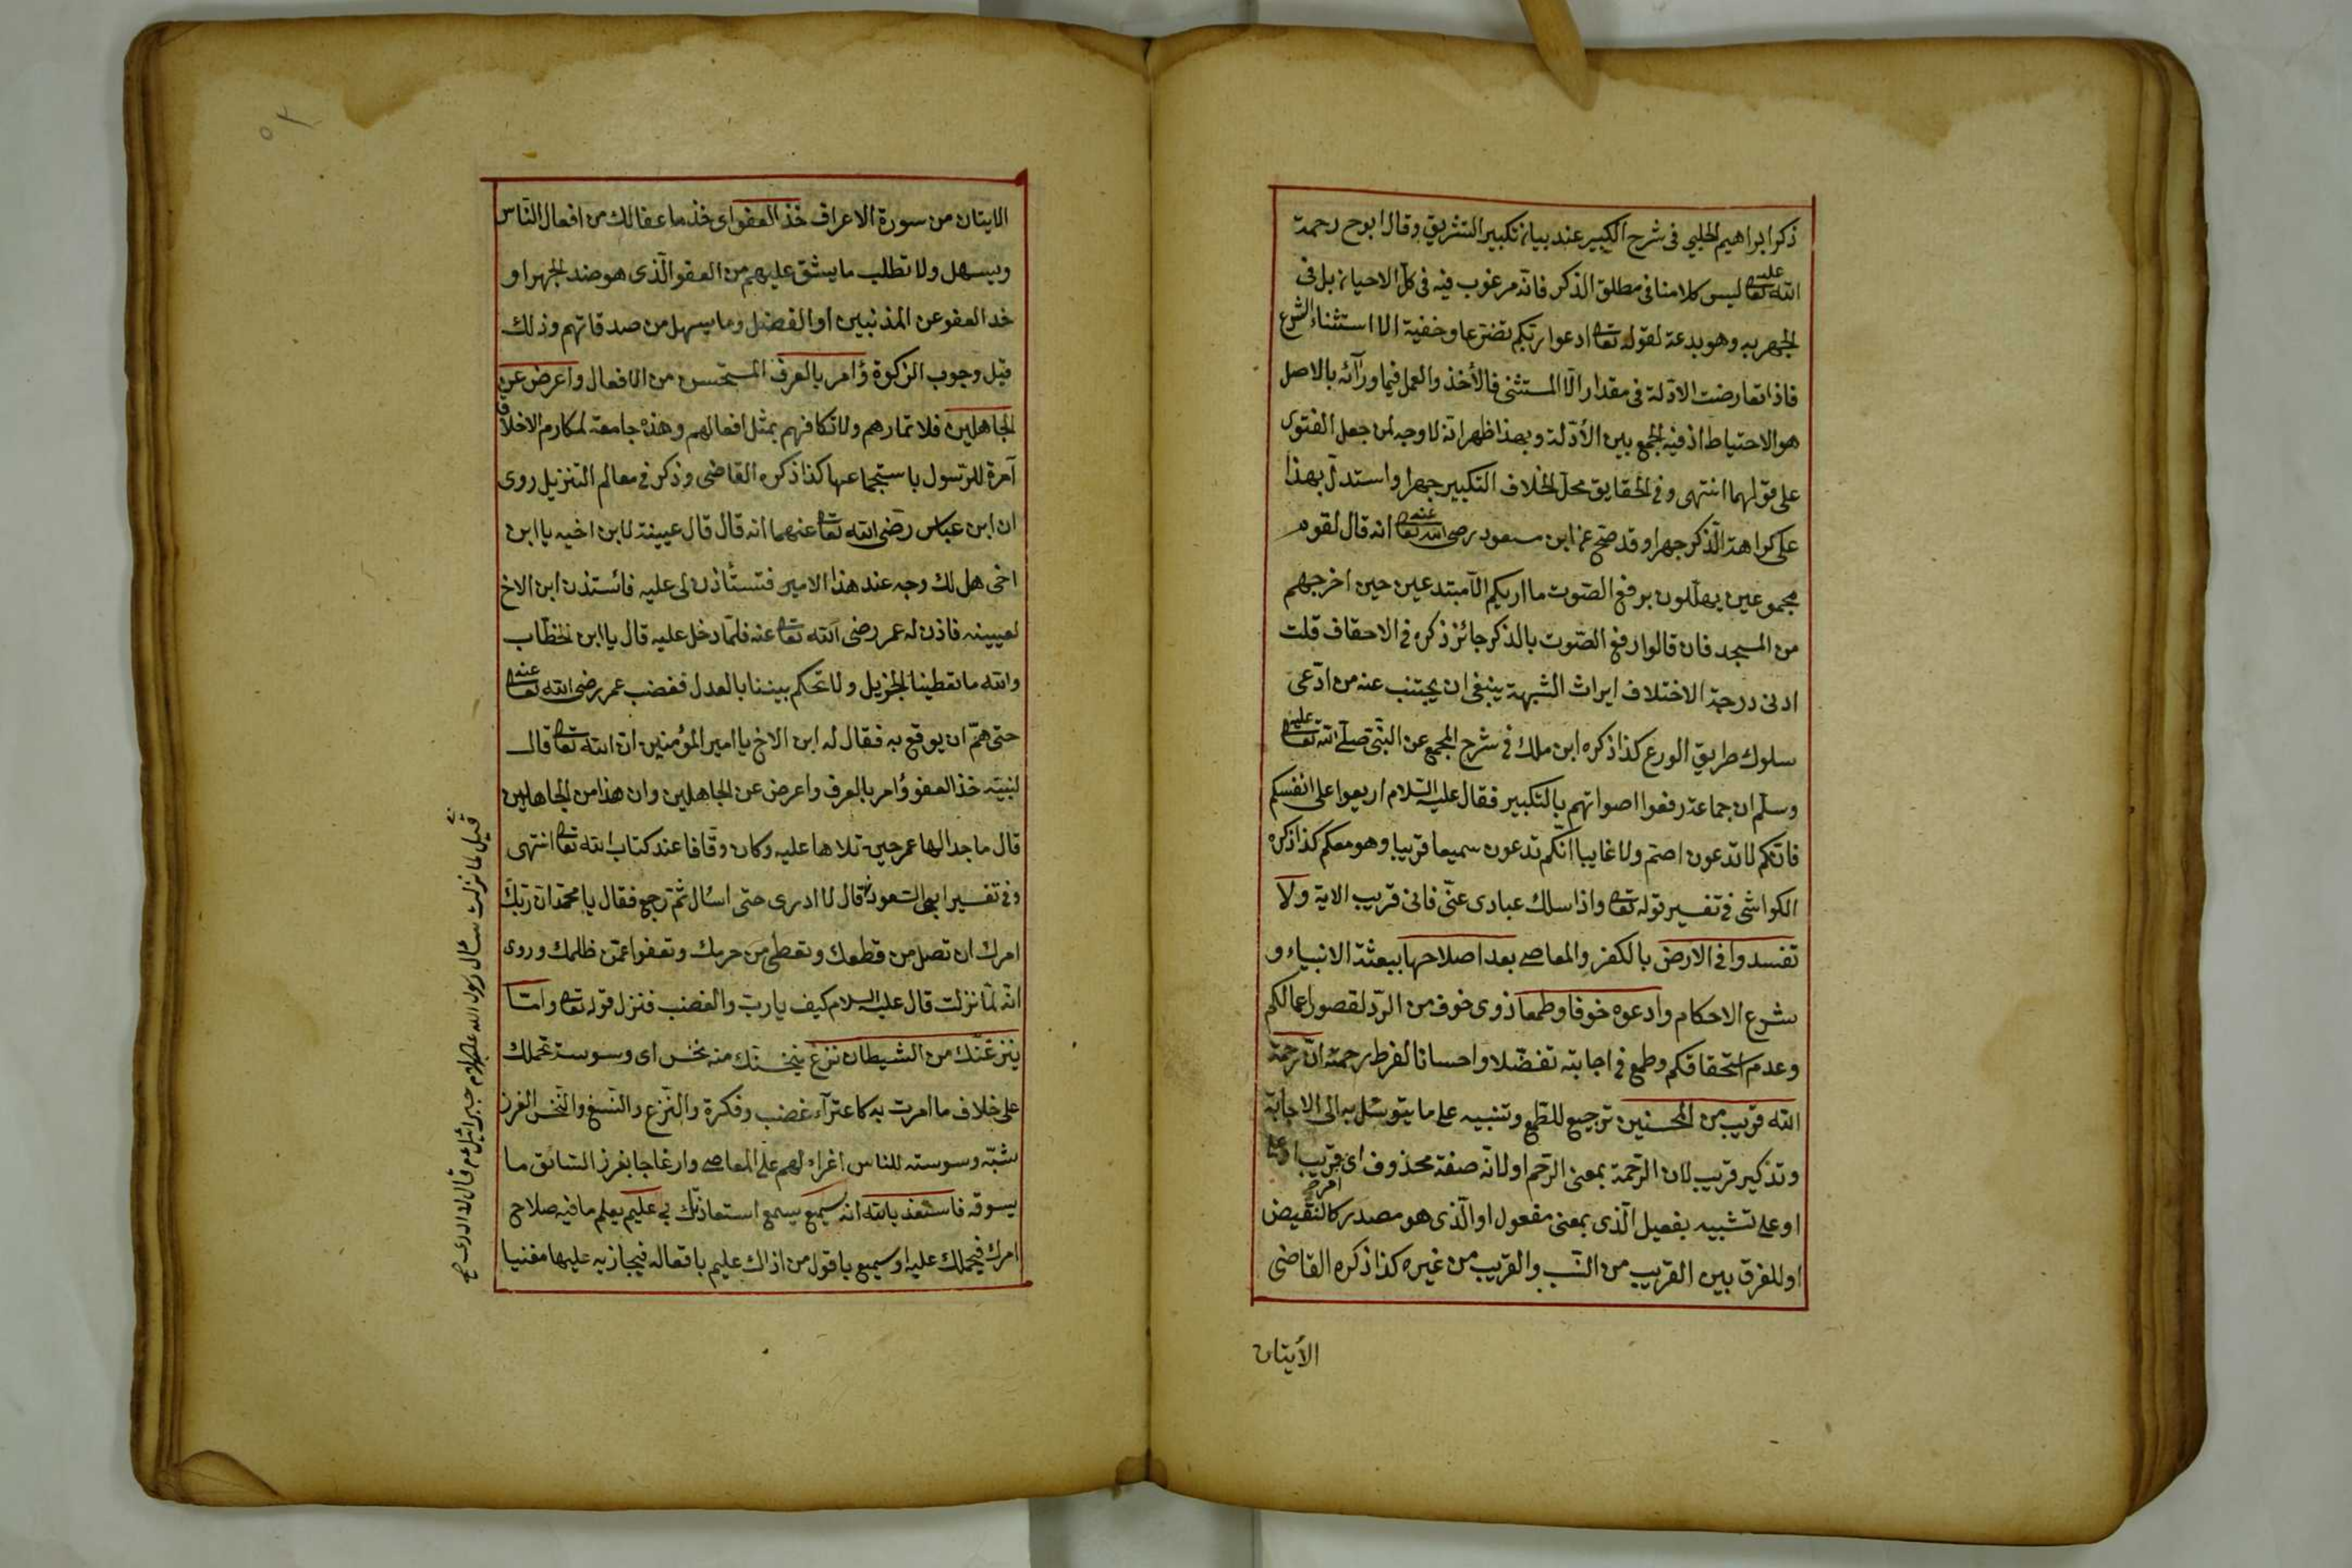 ذكر ابراهيم الحلبي في شرح الكبير عند بيان تكبير التشريق وقال ابو ح رحمة
الله تعا عليه ليس كلامنا في مطلق الذكر فانه مرغوب فيه في كل الاحيان بل في
الجهر به وهو بدعة لقوله تعا ادعوا ربكم تضرعا وخفية الا استثناء الشرع
فاذا تعارضت الادلة في مقدار الا المستثنى فالأخذ والعمل فيما ورآئه بالاصل
هو الاحتياط اذ فيه الجمع بين الأدلة وبهذا ظهر انه لا وجه لمن جعل الفتوى
على قولهما انتهى وفي الحقايق محل الخلاف التكبير جهرا واستدل بهذا
على كراهة الذكر جهرا وقد صح عن ابن مسعود رضى الله تعا عنه انه قال لقوم
مجموعين يهللون برفع الصوت ما اريكم الا مبتدعين حين اخرجهم
من المسجد فان قالوا رفع الصوت بالذكر جائز ذكره في الاحقاف قلت
ادنى درجة الاختلاف ايراث الشبهة ينبغى ان يجتنب عنه من ادعى
سلوك طريق الورع كذا ذكره ابن ملك في شرح المجمع عن النبي صلى الله تعا عليه
وسلم ان جماعة رفعوا اصواتهم بالتكبير فقال عليه السلام اربعوا على انفسكم
فانكم لا تدعون اصم ولا غايبا انكم تدعون سميعا قريبا وهو معكم كذا ذكره
الكواشى في تفسير قوله تعا واذا سلك عبادى عنى فانى قريب الاية ولا
تفسدوا في الارض بالكفر والمعاصى بعد اصلاحها ببعثة الانبياء و
شرع الاحكام وادعوه خوفا وطمعا ذوى خوف من الرد لقصور اعمالكم
وعدم استحقاقكم وطمع في اجابته تفضلا واحسانا لفرط رحمته ان رحمة
الله قريب من المحسنين ترجيع للطمع وتنبيه على ما يتوسل به الى الاجابة
وتذكير قريب لان الرحمة بمعنى الرحم او لانه صفة محذوف اى امر قريب
او على تشبيه بفعيل الذى بمعنى مفعول او الذى هو مصدر كالنقيض
او للفرق بين القريب من النسب والقريب من غيره كذا ذكره القاضى
الأيتان
الايتان من سورة الاعراف خذ العفو اى خذ ما عفا لك من افعال الناس
ويسهل ولا تطلب ما يشق عليهم من العفو الذى هو ضد الجهر او
خد العفو عن المذنبين او الفضل وما يسهل من صدقاتهم وذلك
قبل وجوب الزكوة وأمر بالعرف المستحسن من الافعال واعرض عن
الجاهلين فلا تمارهم ولا تكافهم بمثل افعالهم وهذه جامعة لمكارم الاخلاق
آمرة للرسول باستجماعها كذا ذكره القاضى وذكر في معالم التنزيل روى
ان ابن عباس رضى الله تعا عنهما انه قال قال عيينة لابن اخيه يا ابن
اخى هل لك وجه عند هذا الامير فتستأذن لى عليه فائستذن ابن الاخ
لعيينه فاذن له عمر رضى الله تعا عنه فلما دخل عليه قال يا ابن خطاب
والله ما تعطينا الجزيل ولا تحكم بيننا بالعدل فغضب عمر رضى الله تعا عنه
حتى هم ان يوقع به فقال له ابن الاخ يا امير المؤمنين ان الله تعا قال
لنبيه خذ العفو وأمر بالعرف واعرض عن الجاهلين وان هذا من الجاهلين
قال ما جدالها عمر حين تلاها عليه وكان وقافا عند كتاب الله تعا انتهى
وفي تفسير ابى السعود قال لا ادرى حتى اسأل ثم رجع فقال يا محمد ان ربك
امرك ان تصل من قطعك وتعطى من حرمك وتعفوا عمن ظلمك وروى
انه لما نزلت قال عليه السلام كيف يا رب والغضب فنزل قوله تعا واما
ينزغنك من الشيطان نزغ ينخسنك منه نخس اى وسوسة تحملك
على خلاف ما امرت به كاعترآء غضب وفكرة والنزغ والنسغ والنخس الغرز
شبه وسوسته للناس اغراء لهم على المعاصى وازعاجا بغرز السائق ما
يسوقه فاستعذ بالله انه سميع يسمع استعاذتك عليم يعلم ما فيه صلاح
امرك فيحملك عليه او سميع باقول من اذاك عليم بافعاله فيجازيه عليها مغنيا
قيل لما نزلت سأل رسول الله عليه السلام جبرائيل عم قال لا ادرى